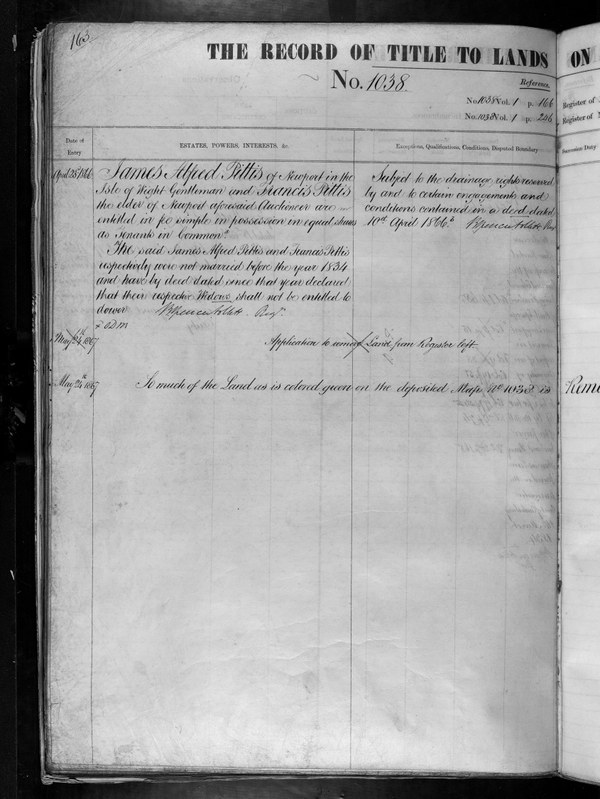 163
THE RECORD OF TITLE TO LANDS ON
No. 1038
Reference.
No. 1038 Vol. 1 p. 166
No. 1038 Vol. 1 p. 246
Register of
Register of
Date of
Entry
ESTATES, POWERS, INTERESTS, &c.
Exceptions, Qualifications, Conditions, Disputed Boundary
Succession Duty
April 28th 1866
James Alfred Pittis of Newport in the
Isle of Wight Gentleman and Francis Pittis
the elder of Newport aforesaid Auctioneer were
entitled in fee simple in possession in equal shares
as Tenants in Common
The said James Alfred Pittis and Francis Pittis
respectively were not married before the year 1834
and have by deed dated since that year declared
that their respective Widows shall not be entitled to
dower
Subject to the drainage rights reserved
by and to certain engagements and
conditions contained in a deed dated
10th April 1866
May 24th 1867
Application to remove Land from Register left
May 24th 1867
So much of the Land as is colored green on the deposited Map No. 1038 is